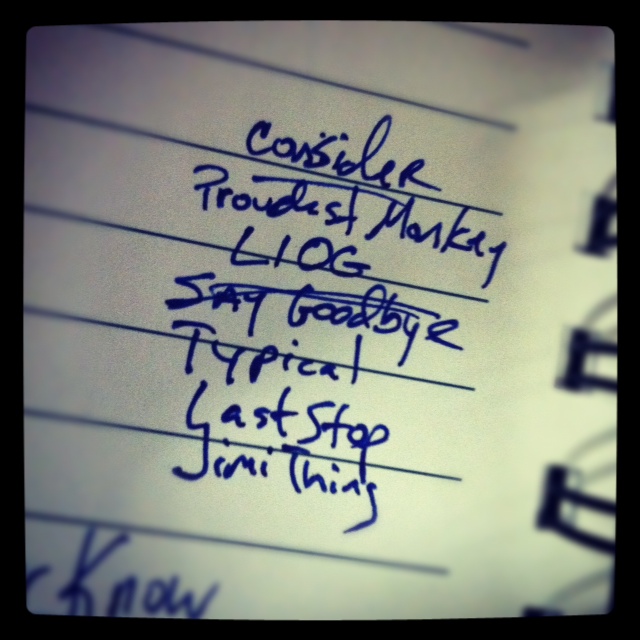 Consider
Proudest Monkey
LIOG
Say Goodbye
Typical
Last Stop
Jimi Thing
Know